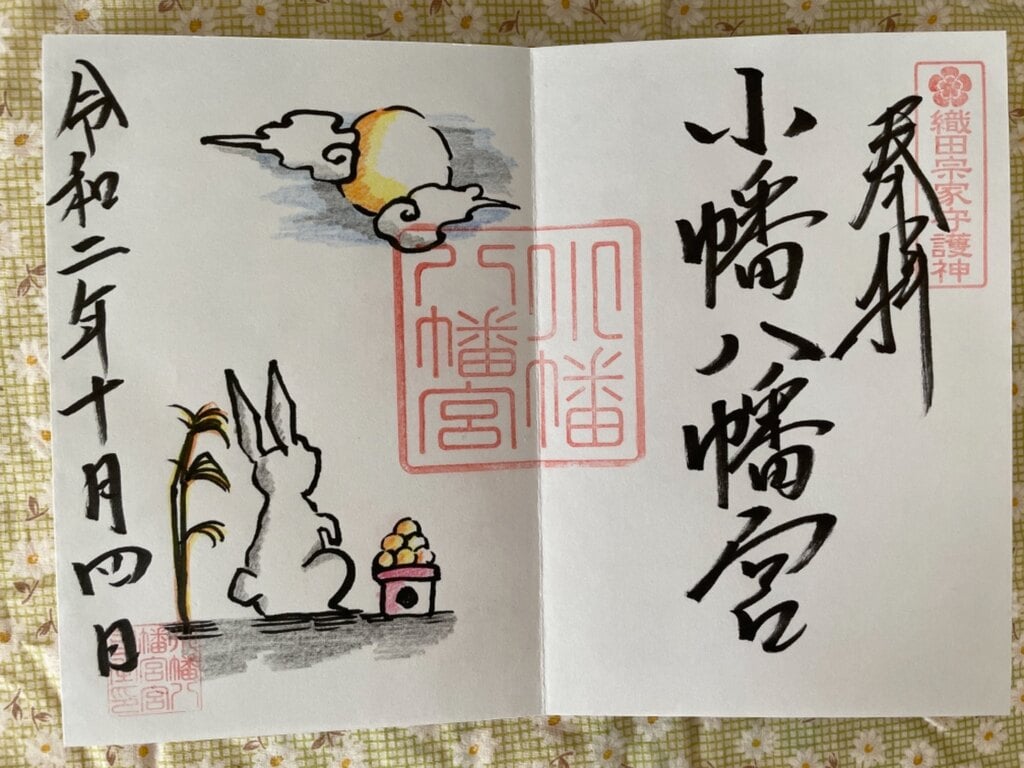 織田宗家守護神
奉拝
小幡八幡宮
小幡
八幡宮
令和二年十月四日